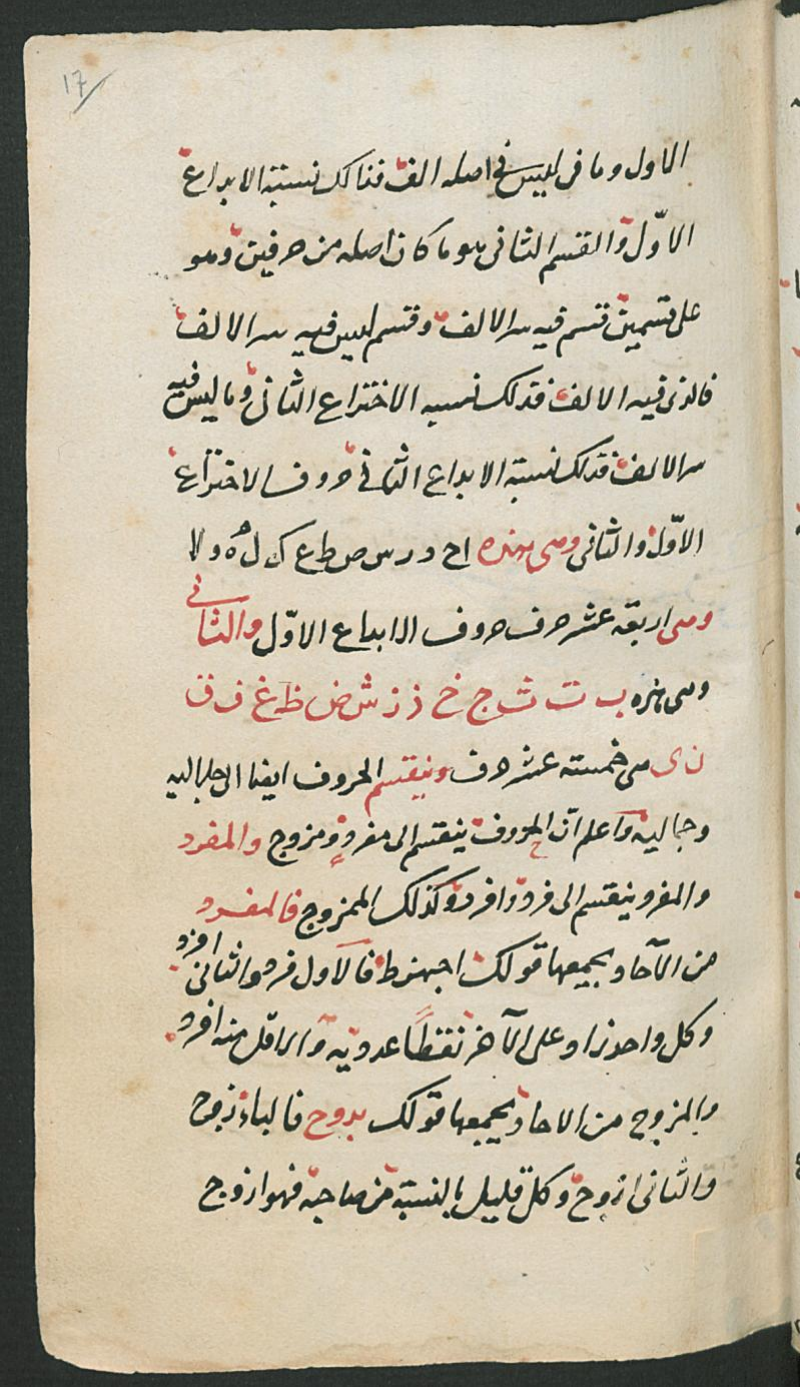 17
الاول وما فى ليس فى اصله الف فذالك نسبته الابداع
الاوّل والقسم الثانى هو ما كان اصله من حرفين وهو
على قسمين قسم فيه سر الالف وقسم ليس فيه سر الالف
فالذى فيه الالف فذلك نسبه الاختراع الثانى وما ليس فيه
سر الالف فذلك نسبته الابداع الثانى حروف الاختراع
الاوّل والثانى وهى هذه ا ح د ر س ص ط ع ك ل م ه و لا
وهى اربعة عشر حرف حروف الابداع الاوّل والثانى
وهى هذه ب ت ث ج خ ذ ز ش ض ظ غ ف ق
ن ى هى خمسته عشر حرف وينقسم الحروف ايضا الى جلاليه
وجماليه واعلم انّ الحروف ينقسم الى مفرد ومزوج والمفرد
والمفرد ينقسم الى فرد وافرد وكذلك الممزوج فالمفرد
من الآحاد يجمعها قولك اجهزط فالاول فرد والثانى افرد
وكل واحد زاد على الآخر نقطا عدديه والاقل منه افرد
والمزوج من الاحاد يجمعها قولك بدوح فالباء زوج
والثانى ازوج وكل قليل بالنسبة من صاحبه فهو ازوج